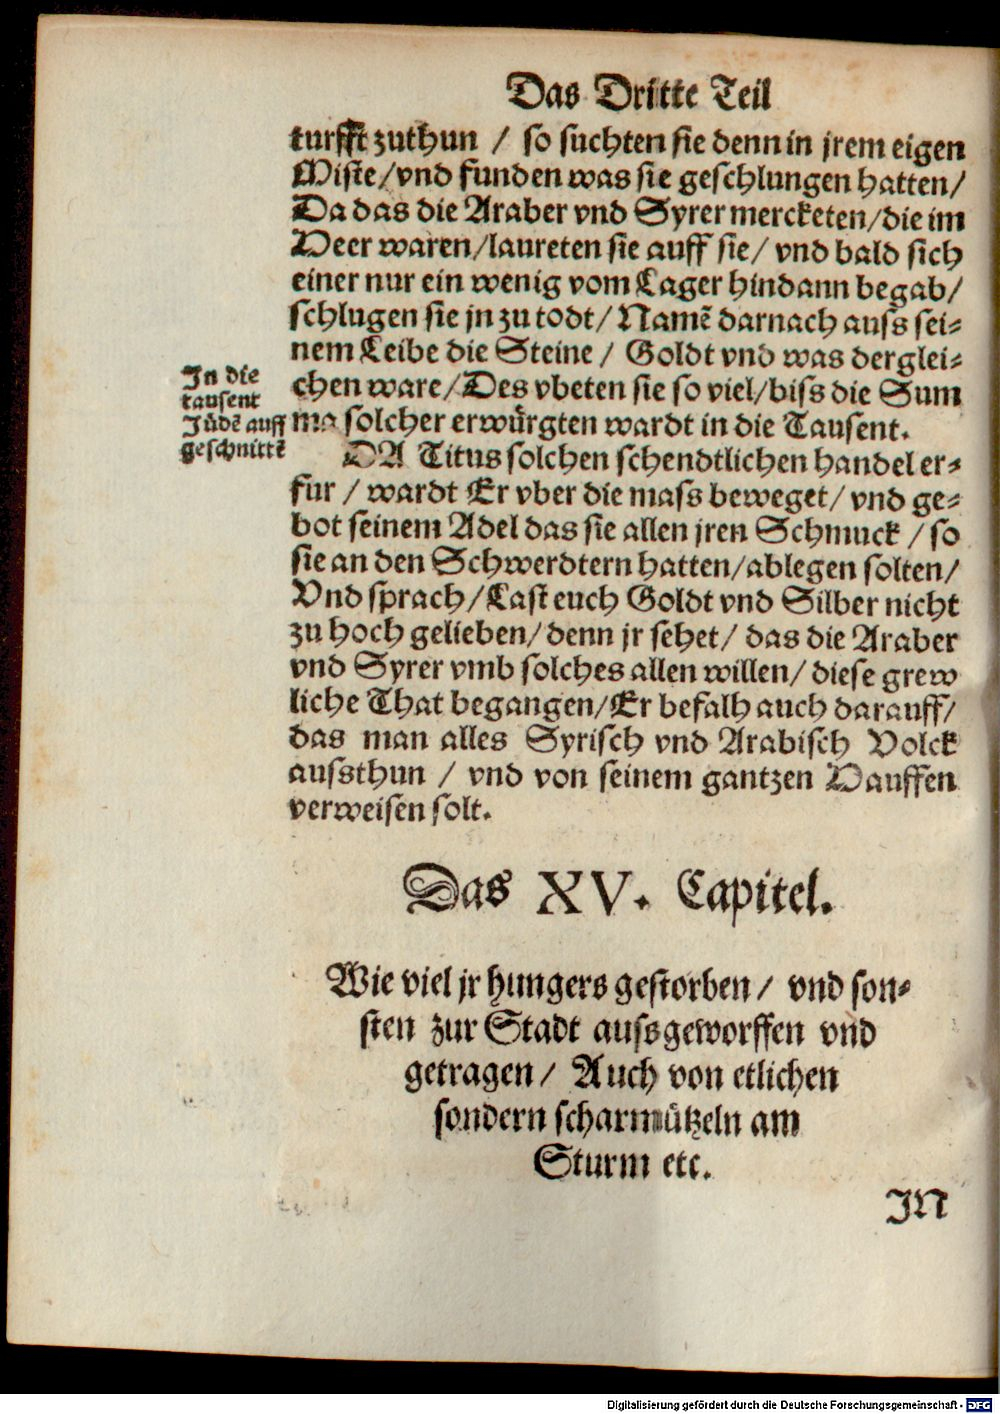 Das Dritte Teil
turfft zuthun / so suchten sie denn in jrem eigen
Miste/vnd funden was sie geschlungen hatten/
Da das die Araber vnd Syrer mercketen/die im
Heer waren/laureten sie auff sie/ vnd bald sich
einer nur ein wenig vom Lager hindann begab/
schlugen sie jn zu todt/Namē darnach auss sei-
nem Leibe die Steine / Goldt vnd was derglei-
chen ware/Des vbeten sie so viel/biss die Sum
ma solcher erwürgten wardt in die Tausent.
In die
tausent
Jüdē auff
geschnittē
DA Titus solchen schendtlichen handel er-
fur / wardt Er vber die mass beweget/ vnd ge-
bot seinem Adel das sie allen jren Schmuck / so
sie an den Schwerdtern hatten/ablegen solten/
Vnd sprach/Last euch Goldt vnd Silber nicht
zu hoch gelieben/denn jr sehet/ das die Araber
vnd Syrer vmb solches allen willen/ diese grew
liche That begangen/Er befalh auch darauff/
das man alles Syrisch vnd Arabisch Volck
aussthun / vnd von seinem gantzen Hauffen
verweisen solt.
Das XV. Capitel.
Wie viel jr hungers gestorben / vnd son-
sten zur Stadt aussgeworffen vnd
getragen / Auch von etlichen
sondern scharmützeln am
Sturm etc.
JN
Digitalisierung gefördert durch die Deutsche Forschungsgemeinschaft - DFG